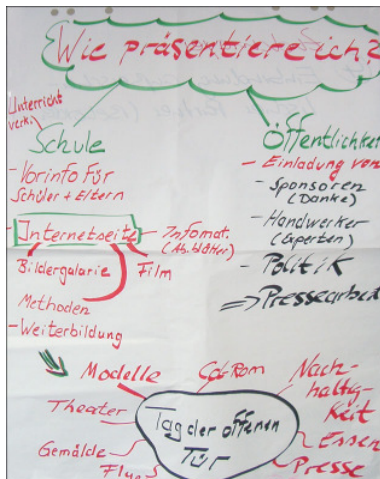 Wie präsentiere ich?
Unterricht
verk.
Schule
- Vorinfo für
Schüler + Eltern
- Internetseite
- Infomat.
(Ab.blätter)
Bildergalarie
Film
Methoden
- Weiterbildung
Öffentlichkei
- Einladung von
- Sponsoren
(Danke)
- Handwerker
(Experten)
- Politik
=> Pressearbeit
Modelle
Cd-Rom
Nach-
haltig-
keit
Theater
Tag der offenen
Tür
Essen
Gemälde
Presse